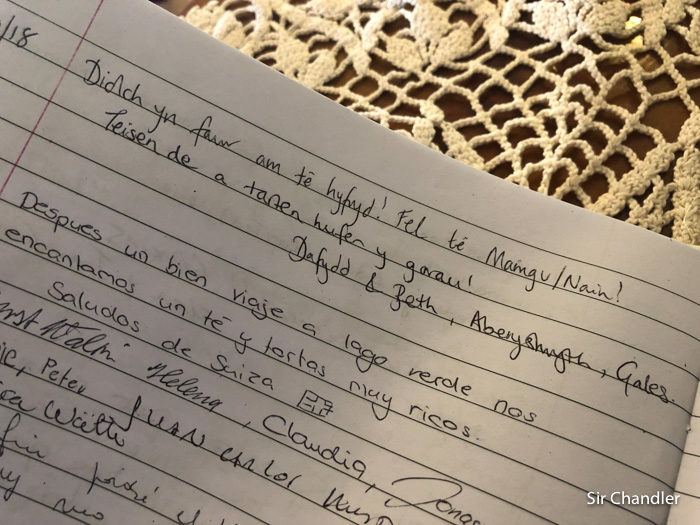 /18
Diolch yn fawr am tê hyfryd! Fel tê Mamgu/Nain!
Teisen de a tarten hufen y gorau!
Dafydd & Beth, Aberystwyth, Gales.
Despues un bien viaje a lago verde nos
encantamos un té y tortas muy ricos.
Saludos de Suiza
Helena, Claudia,
Peter
JUAN CARLOS
Sir Chandler